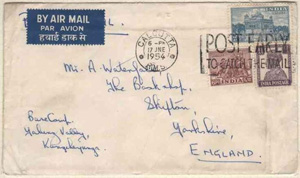 BY AIR MAIL
PAR AVION
हवाई डाक से
CALCUTTA
17 JNE
1954
POST EARLY
TO CATCH THE MAIL
INDIA
INDIA POSTAGE
Mr. A. Waterhouse
The Bookshop,
Skipton,
Yorkshire,
ENGLAND.
Base Camp,
Yalung Valley,
Kangchenjunga